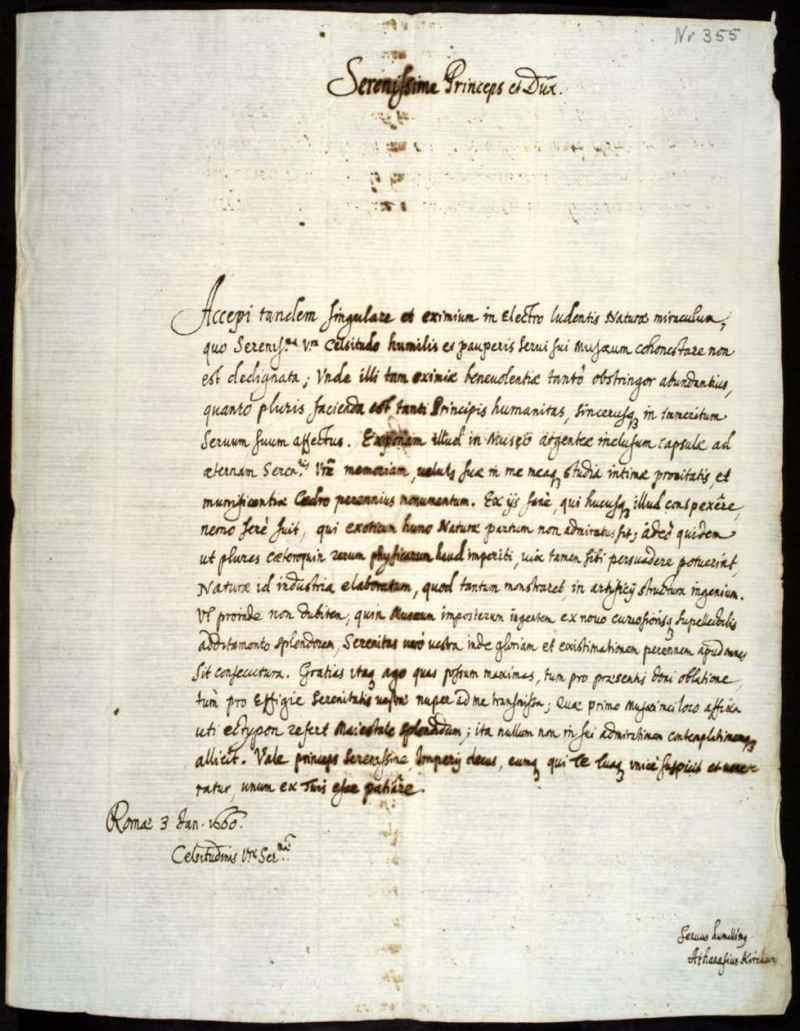 Nr 355
Serenissime Princeps et Dux.
Accepi tandem singulare et eximium in Electro ludentis Naturæ miraculum,
quo Sereniss.ma V.ra Celsitudo humilis et pauperis Serui sui Musæum cohonestare non
est dedignata; Vnde illi tam eximiæ beneuolentiæ tantò obstringor abundantius,
quantò pluris facienda est tanti Principis humanitas, sincerusq3 in immeritum
Seruum suum affectus. Exponam illud in Musæo argenteæ inclusum capsulæ ad
æternam Seren.tis V.ræ memoriam, veluti suæ in me meaq3 studia intimæ pronitatis, et
munificentiæ Cedro perennius monumentum. Ex ijs sanè, qui hucusq3 illud conspexêre,
nemo ferè fuit, qui exoticum hunc Naturæ partum non admiratus sit; adeò quidem
ut plures cæteroquin rerum physicarum haud imperiti, uix tamen sibi persuadere potuerint,
Naturæ id industria elaboratum, quod tantum monstraret in artificij structura ingenium.
Vt proinde non dubitem, quin Musæum imposterum ingentem ex nouo curiosionisq3 supellectilis
additamento splendorem, Serenitas verò vestra inde gloriam et existimationem perennem apud omnes
sit consecutura. Gratias itaq3 ago quas possum maximas, tum pro præsentis doni oblatione,
tùm pro Effigie Serenitatis vestræ nuper ad me transmissa; Quæ primo Musæi mei loco affixa
uti ectypon refert Maiestate splendidum; ita nullum non in sui admirationem contemplationemq3
allicit. Vale princeps Serenissime, Imperij decus, eumq3 qui Te tuaq3 unicè suspicit et vene-
ratur, unum ex Tuis esse patiâre.
Romæ 3 Jan. 1660.
Celsitudinis V.ræ Ser.mæ
Seruus humillimq
Athanasius Kircherus